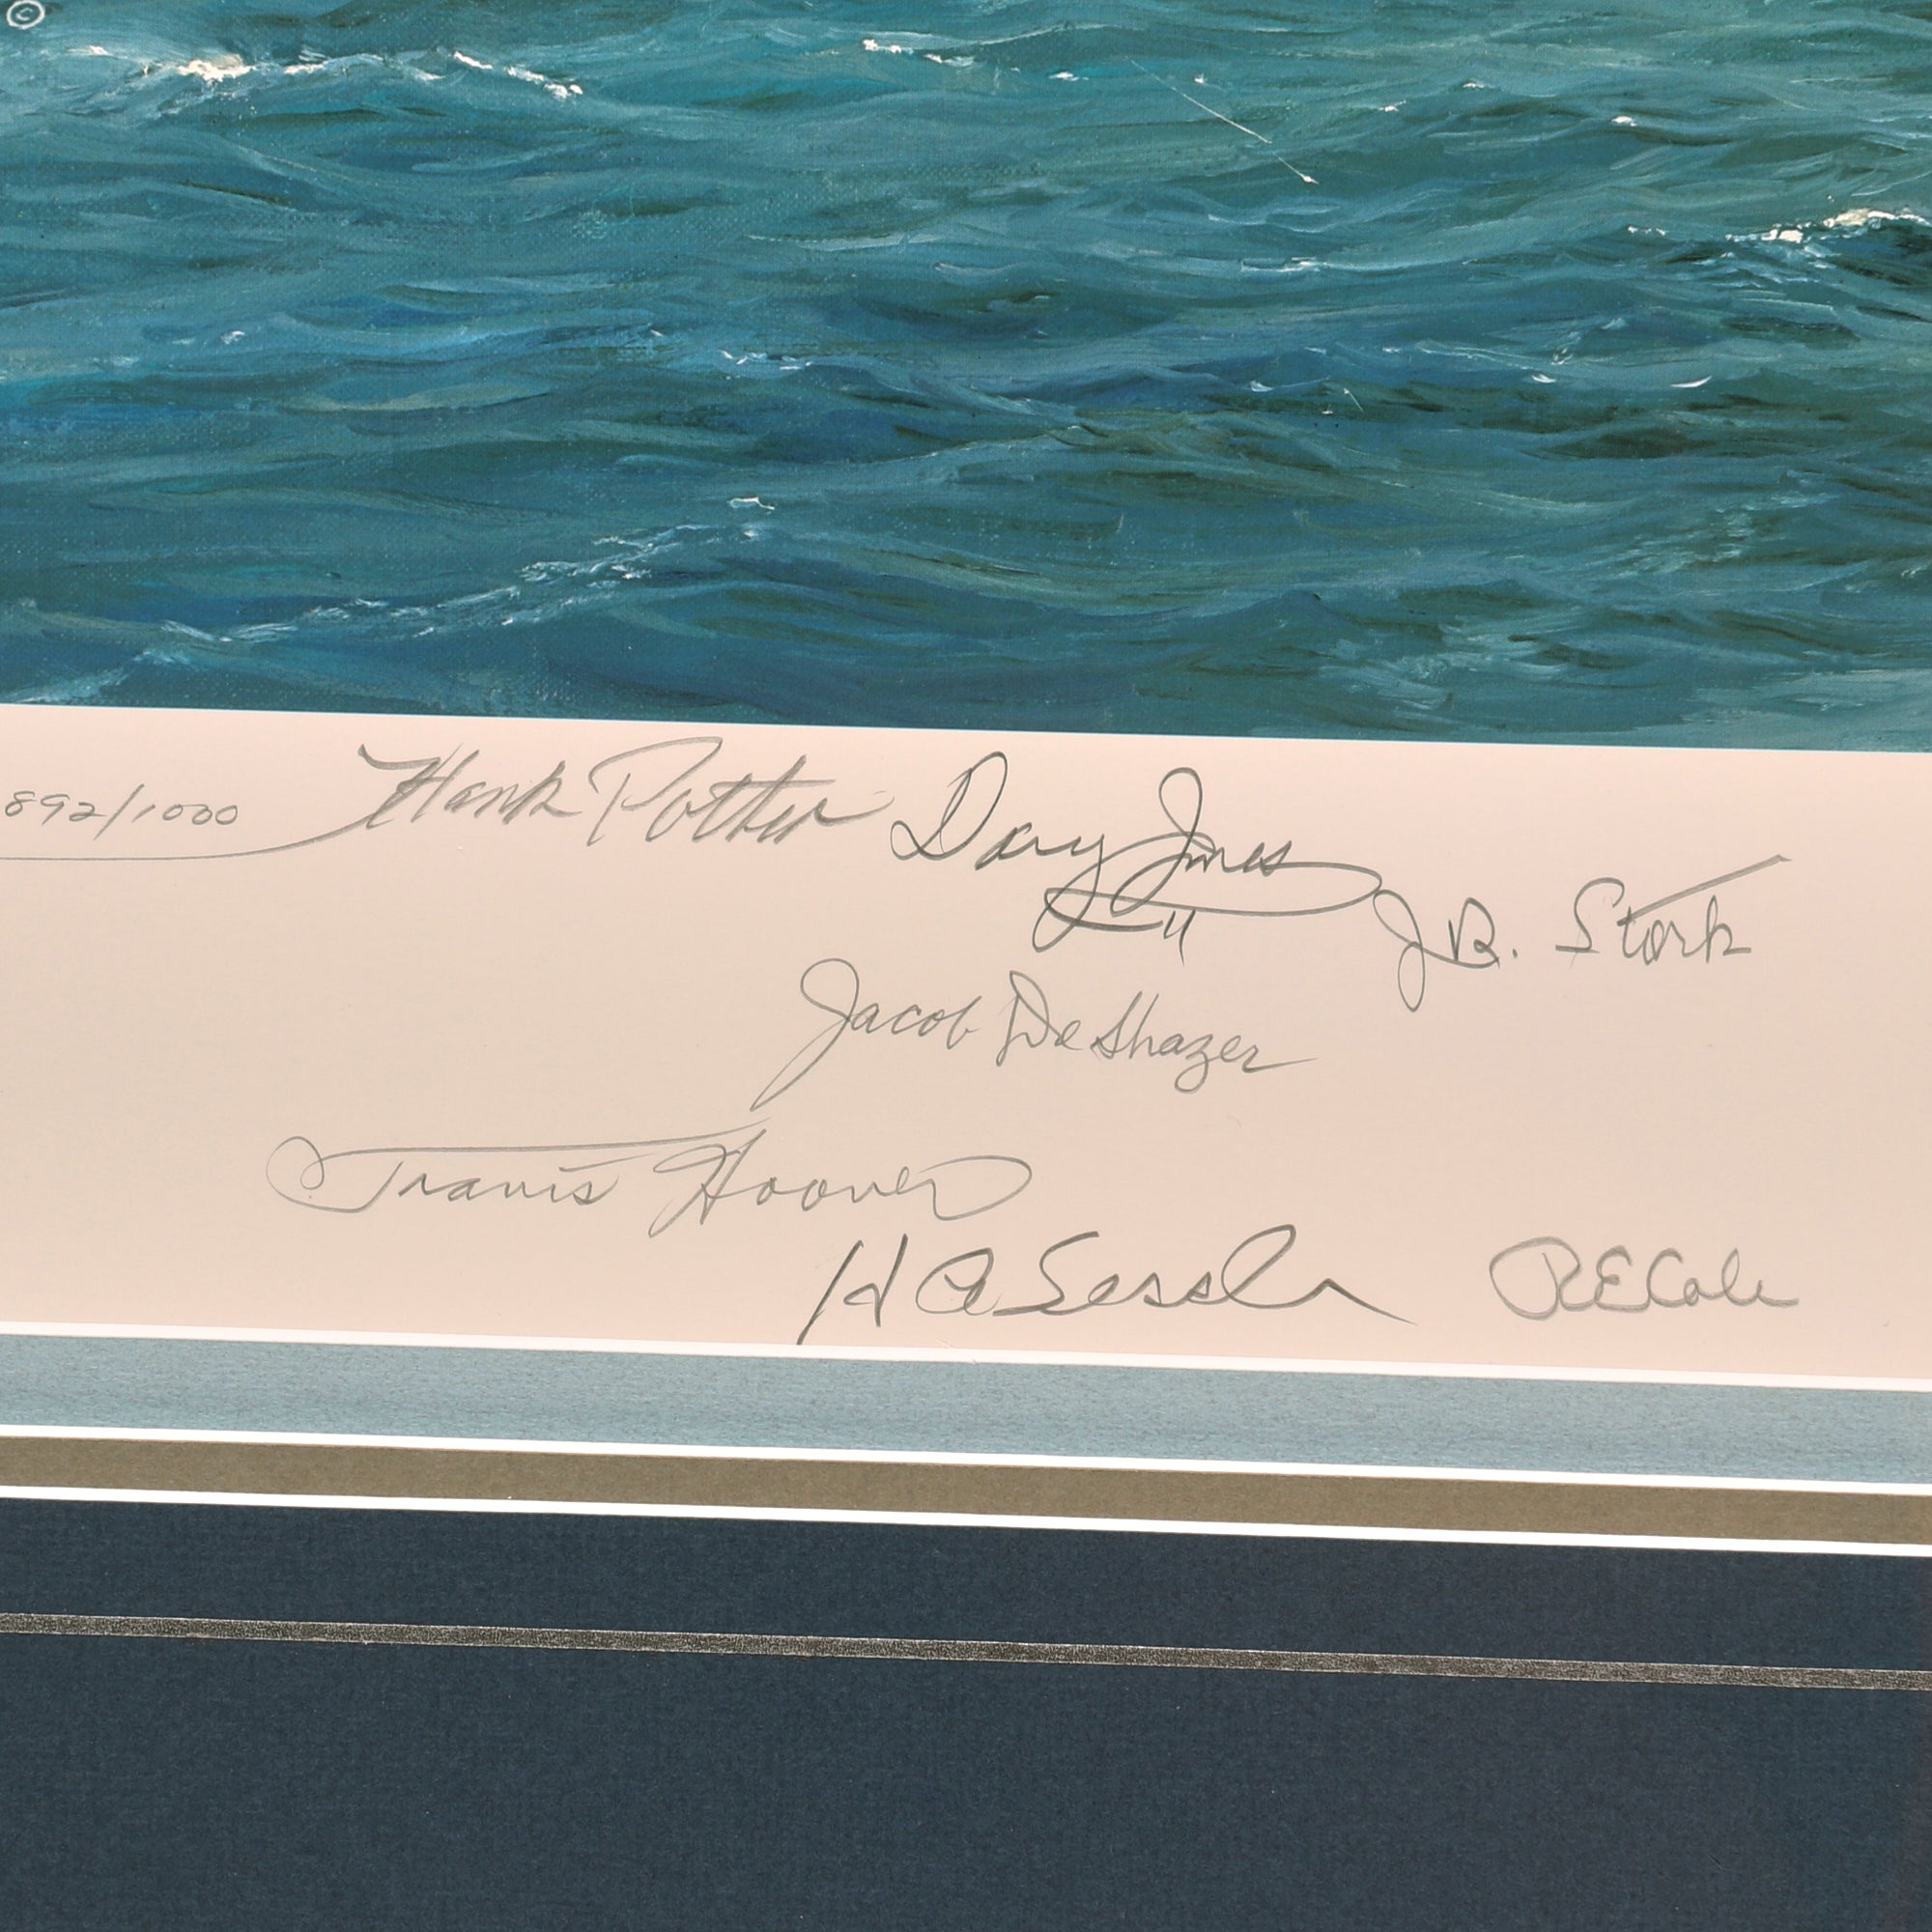 ©
892/1000 Hank Potter Davy Jones
J.B. Stork
Jacob DeShazer
Travis Hoover
H A Sessler R E Cole